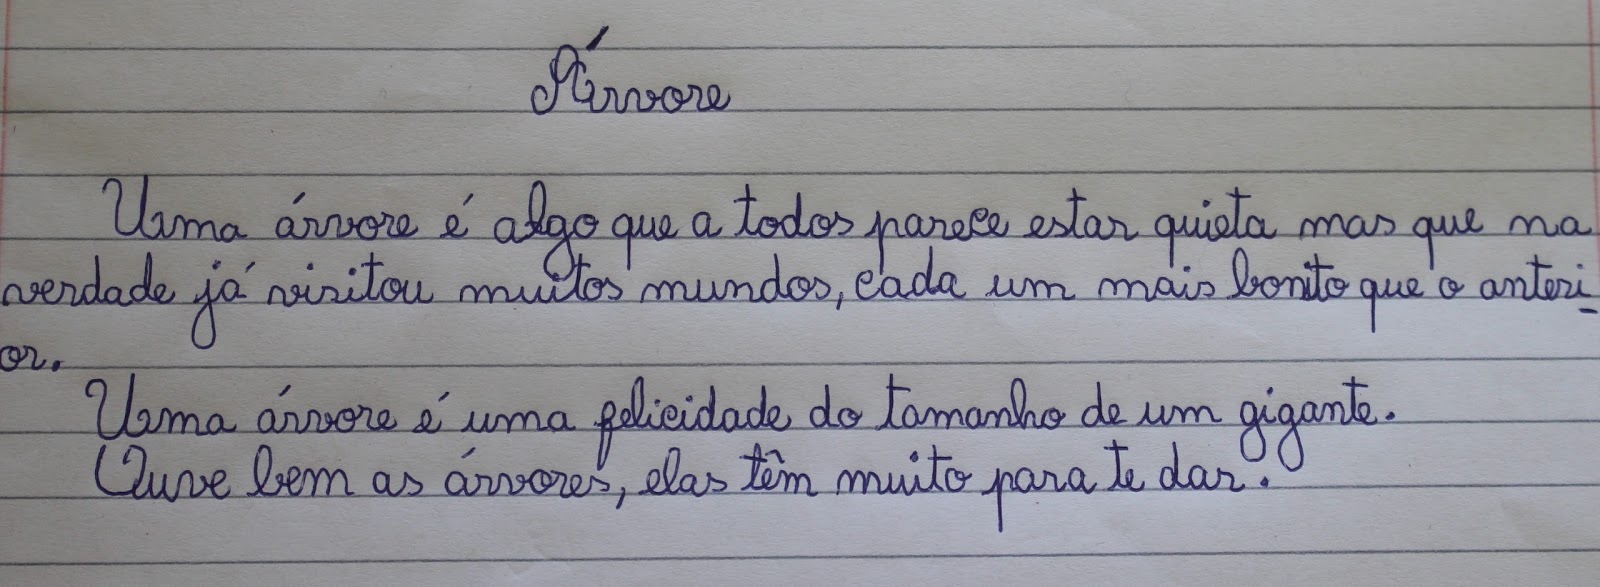 Árvore
Uma árvore é algo que a todos parece estar quieta mas que na
verdade já visitou muitos mundos, cada um mais bonito que o anteri-
or.
Uma árvore é uma felicidade do tamanho de um gigante.
Ouve bem as árvores, elas têm muito para te dar.